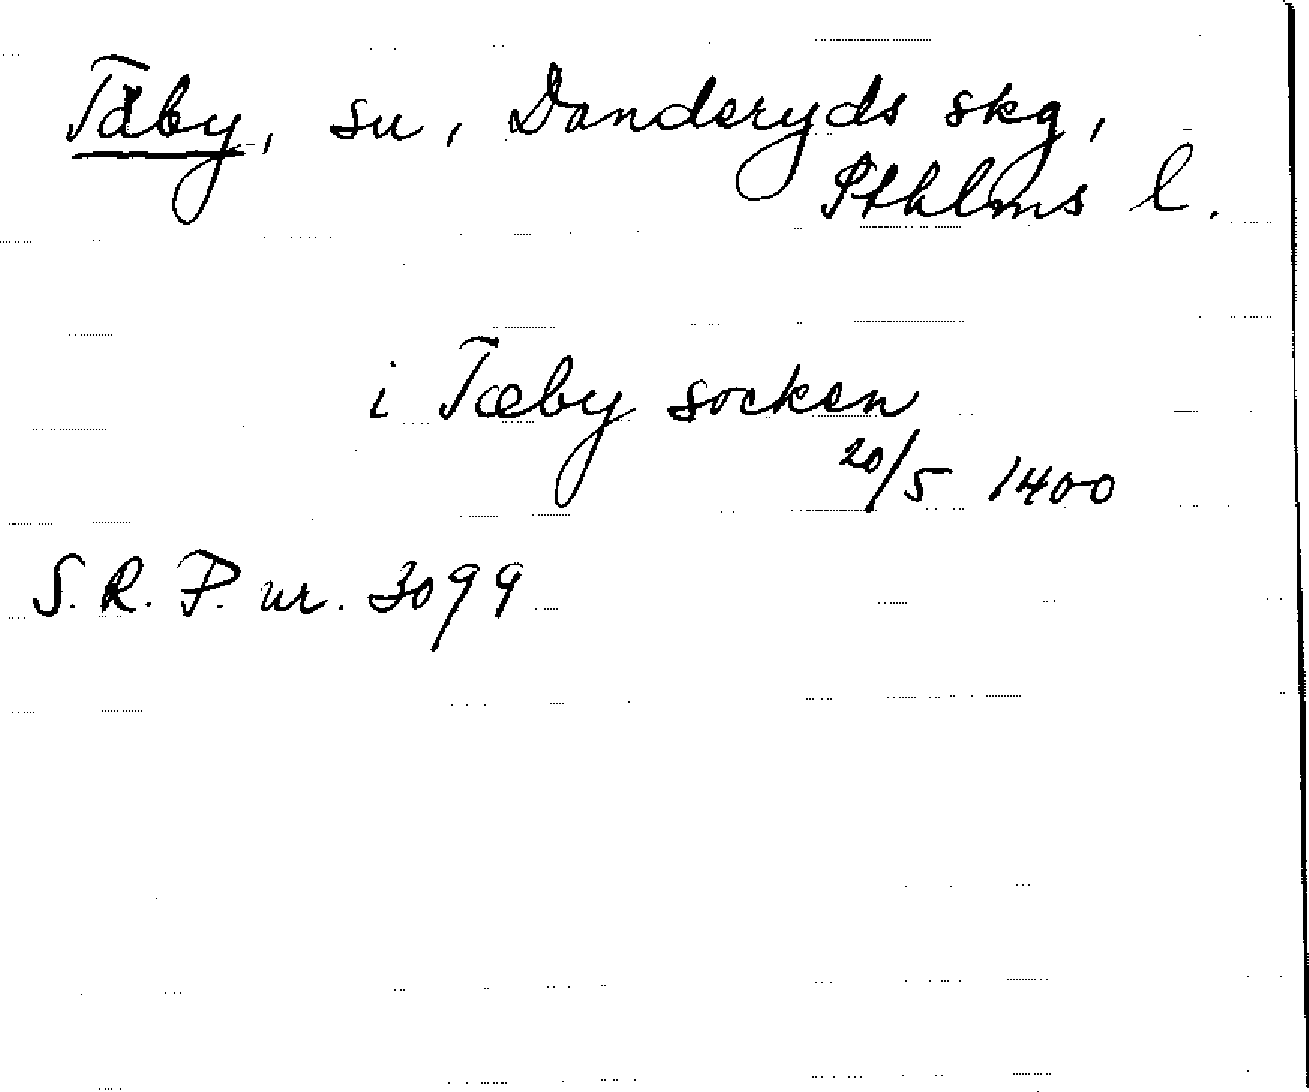 Täby, sn, Danderyds skg,
Sthlms l.
i Tæby socken
20/5 1400
S.R.P. nr. 3099